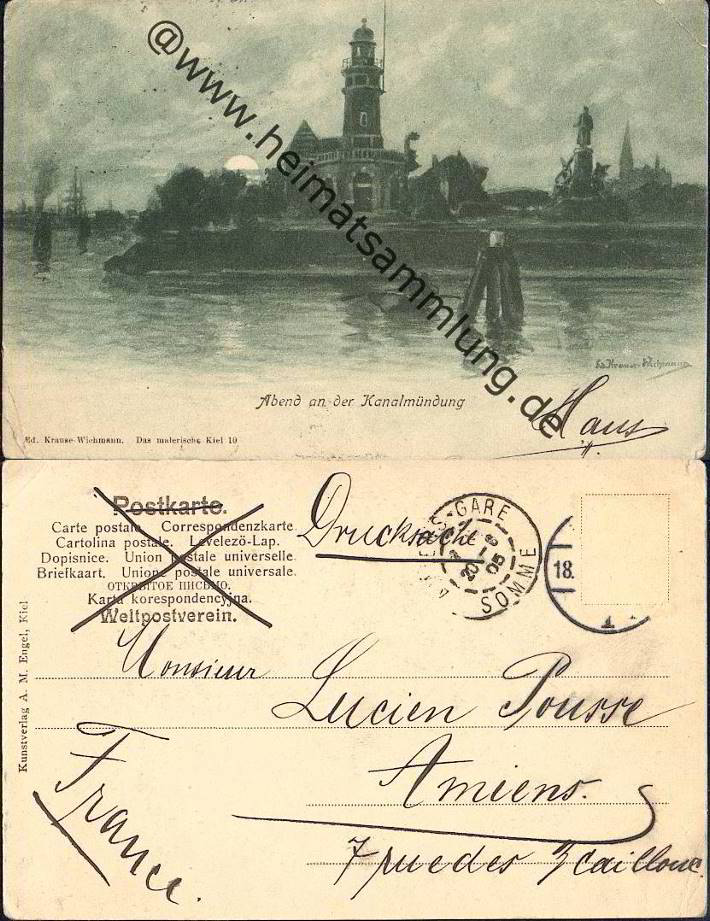 @www.heimatsammlung.de
Ed. Krause-Wichmann
Abend an der Kanalmündung
Hans
Ed. Krause-Wichmann. Das malerische Kiel 10
Postkarte.
Carte postale. Correspondenzkarte.
Cartolina postale. Levelező-Lap.
Dopisnice. Union postale universelle.
Briefkaart. Unione postale universale.
ОТКРЫТОЕ ПИСЬМО.
Karta korespondencyjna.
Weltpostverein.
Drucksache
GARE
05
SOMME
18.
Kunstverlag A. M. Engel, Kiel
Monsieur
Lucien Pousse
Amiens.
France.
7 rue des 3 cailloux